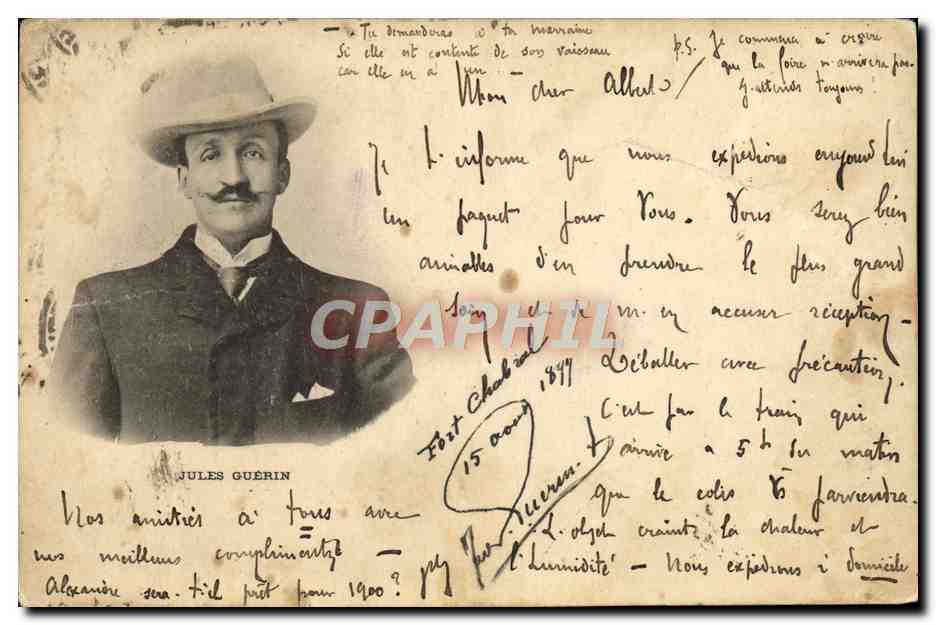 — Tu demanderas à ta marraine
Si elle est contente de son vaisseau
car elle en a un —
P.S. Je commence à croire
que la foire n'arrivera pas
J'attends toujours!
Mon cher Albert
Je t'informe que nous expédions aujourd'hui
un paquet pour Vous. Vous serez bien
aimables d'en prendre le plus grand
soin et de m'en accuser réception —
Déballer avec précaution.
C'est par le train qui
arrive à 5h du matin
que le colis Vs parviendra.
L'objet craint la chaleur et
l'humidité — Nous expédions à domicile
CPAPHIL
Fort Chabrol
15 août 1899
Jules Guérin
JULES GUÉRIN
Nos amitiés à tous avec
nos meilleurs compliments —
Alexandre sera-t-il prêt pour 1900?